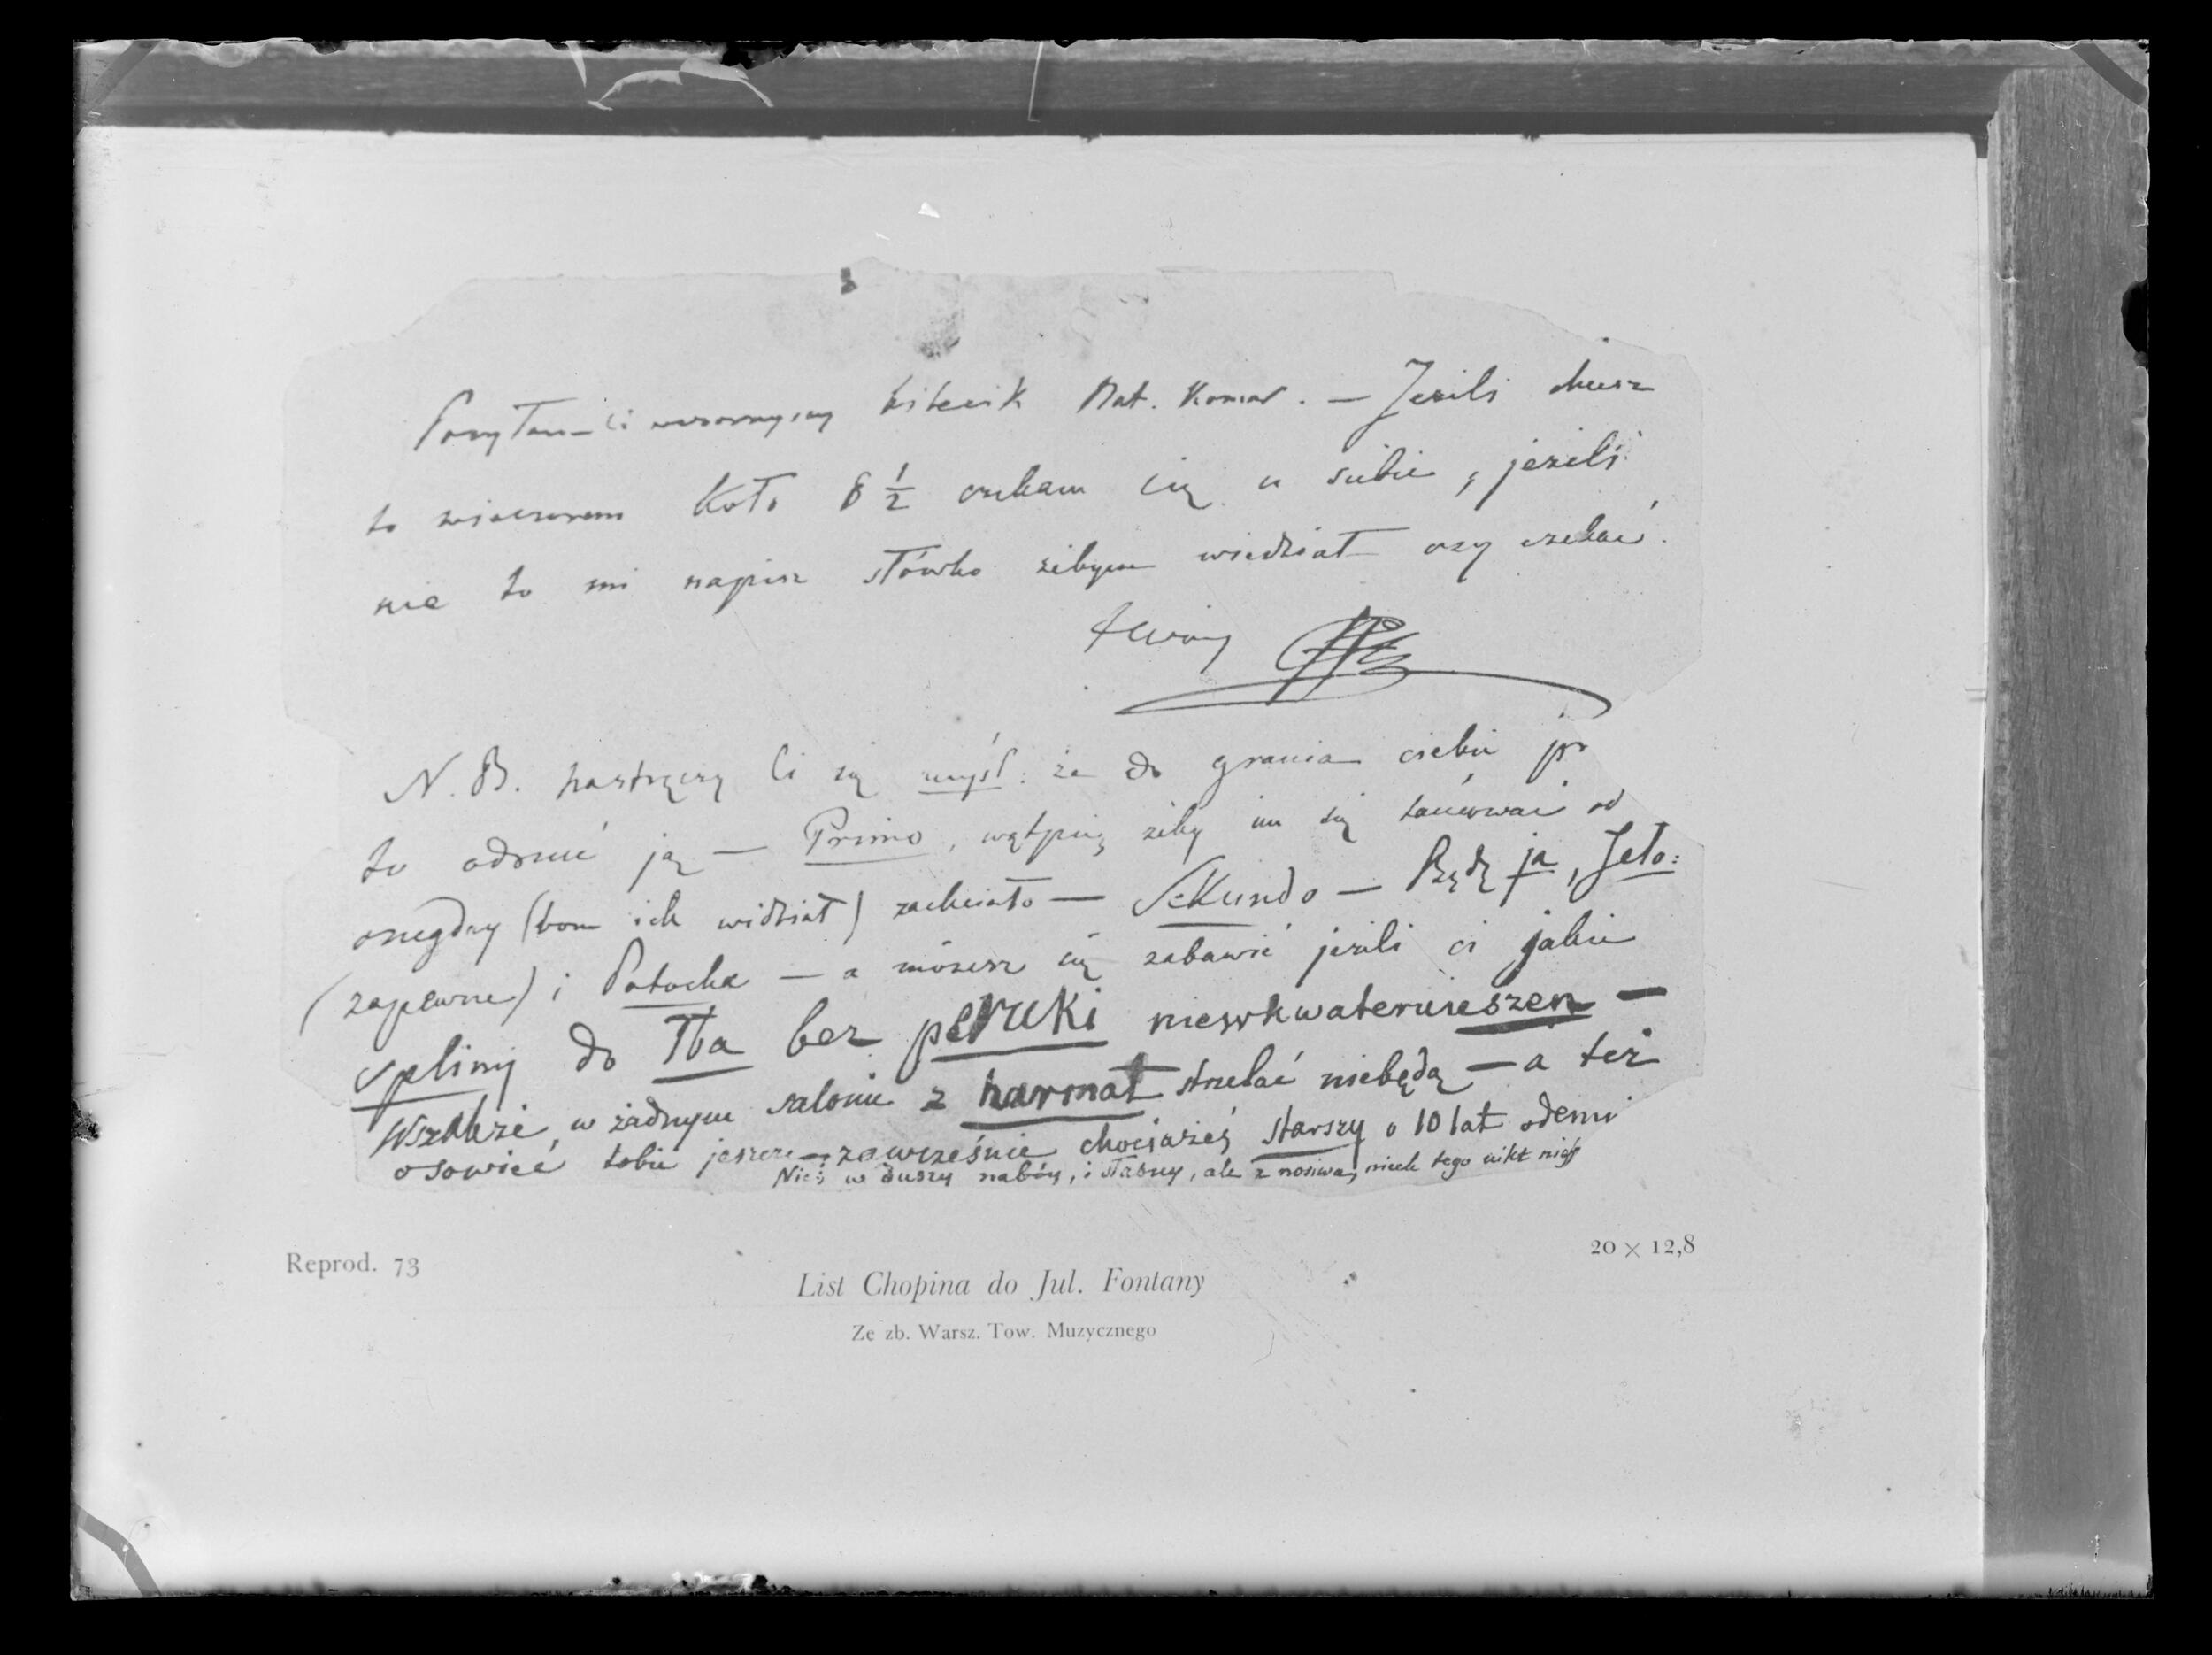 Posyłam ci wczorajszy bilecik Nat. Komar. — Jeżeli chcesz
to wieczorem koło 8 ½ czekam cię u siebie, jeżeli
nie to mi napisz słówko żebym wiedział czy czekać.
N.B. nastręczy Ci się myśl: że do grania ciebie pr
to odrzuć ją — Primo, wątpię żeby im się tańcować od
onegday (bom ich widział) zachciało — Sekundo — Będę ja, Jeło:
(zapewne) i Potocka — a możesz się zabawić jeżeli ci jakie
spliny do Łba bez peruki niewkwaterujeszen —
Wszakże, w żadnym salonie z harmat strzelać niebędą — a też
osowieć tobie jeszcze zawcześnie chociażeś starszy o 10 lat odemnie
w duszy nabóy, i słabuy, ale z nosiwa, niech tego nikt
Reprod. 73
20 × 12,8
List Chopina do Jul. Fontany
Ze zb. Warsz. Tow. Muzycznego